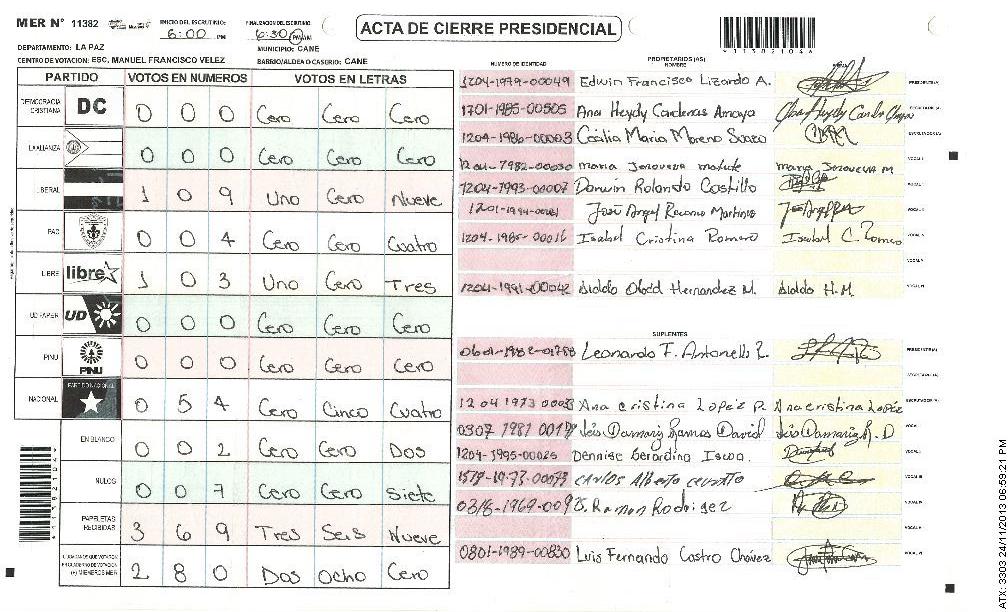 MER N° 11382
INICIO DEL ESCRUTINIO: 6:00 PM
FINALIZACION DEL ESCRUTINIO: 6:30 PM
ACTA DE CIERRE PRESIDENCIAL
DEPARTAMENTO: LA PAZ
MUNICIPIO: CANE
CENTRO DE VOTACION: ESC. MANUEL FRANCISCO VELEZ
BARRIO/ALDEA O CASERIO: CANE
PARTIDO VOTOS EN NUMEROS VOTOS EN LETRAS
DEMOCRACIA CRISTIANA DC 0 0 0 Cero Cero Cero
LA ALIANZA 0 0 0 Cero Cero Cero
LIBERAL 1 0 9 Uno Cero Nueve
PAC 0 0 4 Cero Cero Cuatro
LIBRE libre 1 0 3 Uno Cero Tres
UD FAPER UD 0 0 0 Cero Cero Cero
PINU PINU 0 0 0 Cero Cero Cero
NACIONAL PARTIDO NACIONAL 0 5 4 Cero Cinco Cuatro
EN BLANCO 0 0 2 Cero Cero Dos
NULOS 0 0 7 Cero Cero Siete
PAPELETAS RECIBIDAS 3 6 9 Tres Seis Nueve
CIUDADANOS QUE VOTARON EN CUADERNO DE VOTACION (+) MIEMBROS MER 2 8 0 Dos Ocho Cero
NUMERO DE IDENTIDAD PROPIETARIOS (AS) NOMBRE
1204-1979-00049 Edwin Francisco Lizardo A. PRESIDENTE(A)
1701-1985-00505 Ana Heydy Cardenas Amaya SECRETARIO(A)
1204-1986-00003 Cecilia Maria Moreno Suazo ESCRUTADOR(A)
VOCAL I
1204-1993-00007 Darwin Rolando Castillo VOCAL II
José Angel Martinez VOCAL III
1204-1985-00016 Isabel Cristina Romero Isabel C. Romero VOCAL IV
VOCAL V
1204-1991-00042 Obed Hernandez M. H.M. VOCAL VI
SUPLENTES
0601-1982-01788 Leonardo F. Antonelli PRESIDENTE(A)
SECRETARIO(A)
1204 1973 Ana cristina Lopez P. Ana cristina Lopéz ESCRUTADOR(A)
0307 1981 Damariz Ramos David Damariz R. D VOCAL I
1204-1995-00025 Dennise Gerardina VOCAL II
Carlos Alberto VOCAL III
Ramon Rodriguez VOCAL IV
VOCAL V
0801-1989-00830 Luis Fernando Castro Chávez VOCAL VI
ATX: 3303 24/11/2013 06:59:21 PM